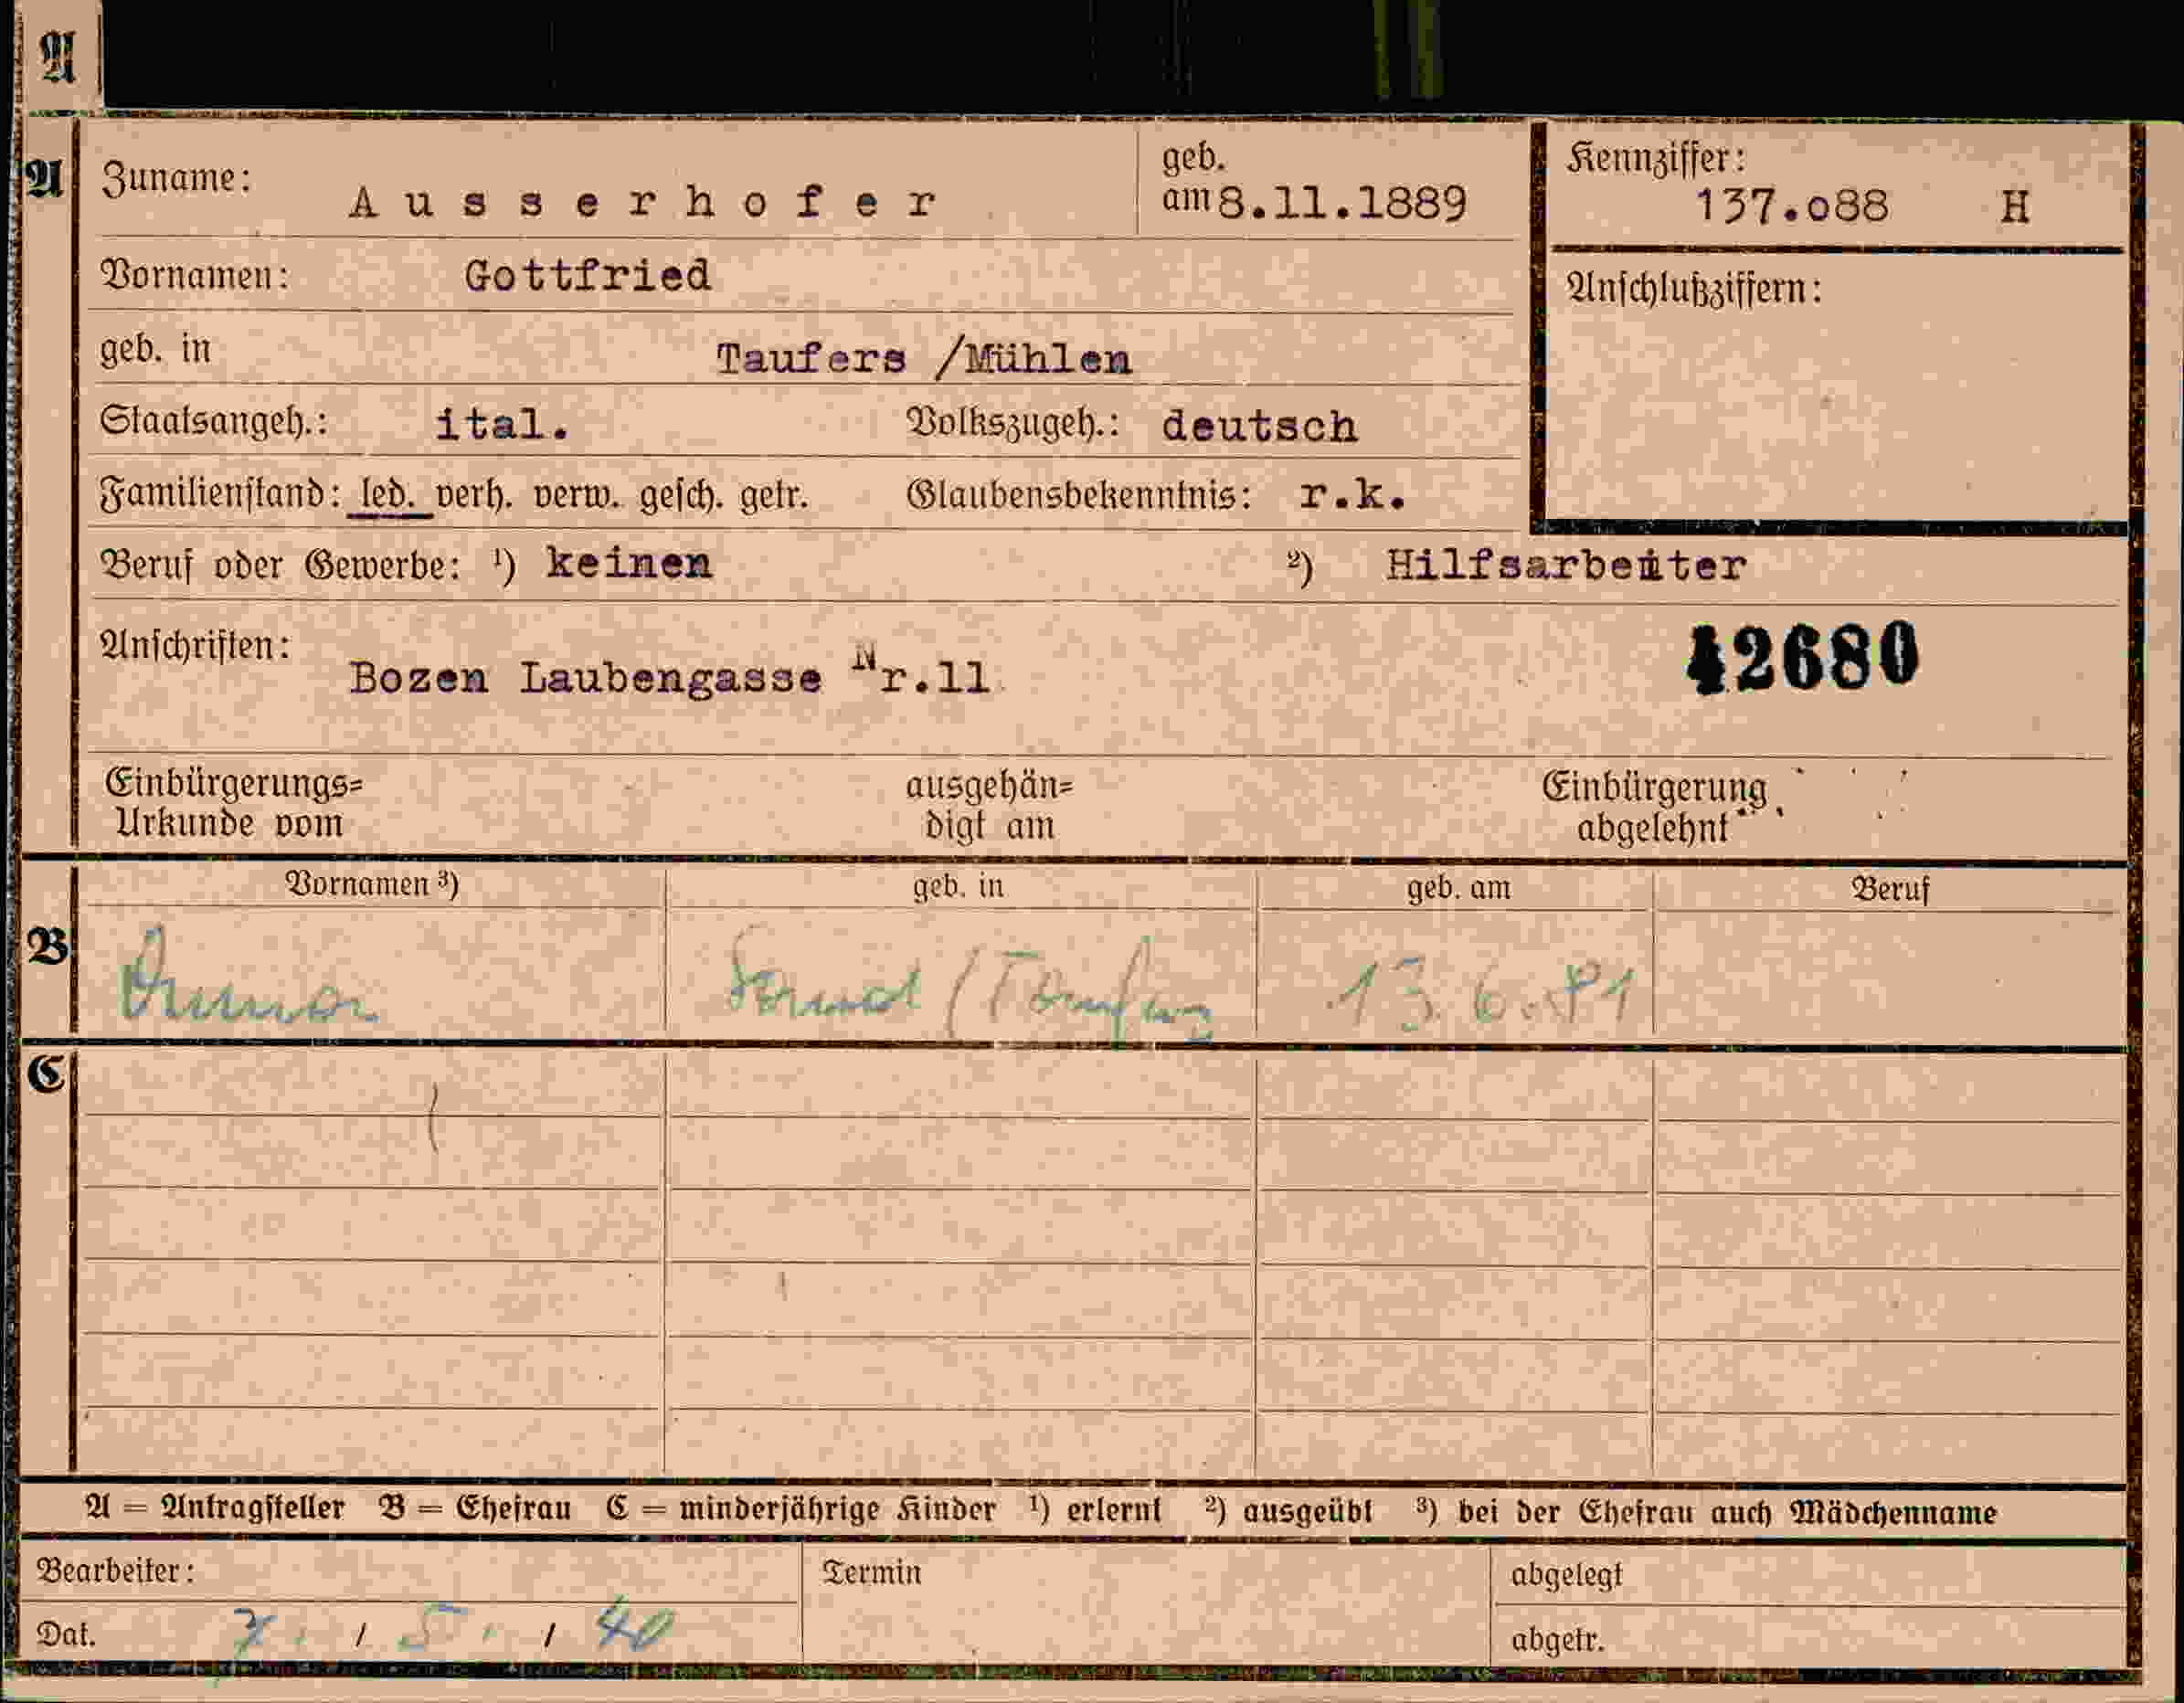 A
A Zuname: Ausserhofer geb. am 8.11.1889 Kennziffer: 137.o88 H
Vornamen: Gottfried Anschlußziffern:
geb. in Taufers /Mühlen
Staatsangeh.: ital. Volkszugeh.: deutsch
Familienstand: led. verh. verw. gesch. getr. Glaubensbekenntnis: r.k.
Beruf oder Gewerbe: ¹) keinen ²) Hilfsarbeiter
Anschriften: Bozen Laubengasse Nr.11 42680
Einbürgerungs= ausgehän= Einbürgerung
Urkunde vom digt am abgelehnt
Vornamen ³) geb. in geb. am Beruf
B 13.6.81
C
A = Antragsteller B = Ehefrau C = minderjährige Kinder ¹) erlernt ²) ausgeübt ³) bei der Ehefrau auch Mädchenname
Bearbeiter: Termin abgelegt
Dat. 7. / 5. / 40 abgetr.